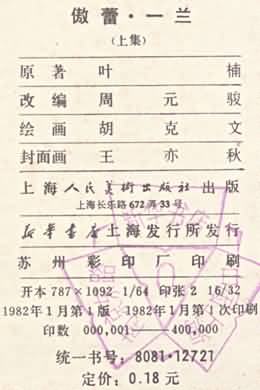 傲蕾·一兰
(上集)
原著 叶楠
改编 周元骏
绘画 胡克文
封面画 王亦秋
上海人民美術出版社出版
上海长乐路672弄33号
新华書店上海发行所发行
苏州彩印厂印刷
开本787×1092 1/64 印张2 16/32
1982年1月第1版 1982年1月第1次印刷
印数 000,001——400,000
统一书号: 8081·12721
定价: 0.18 元